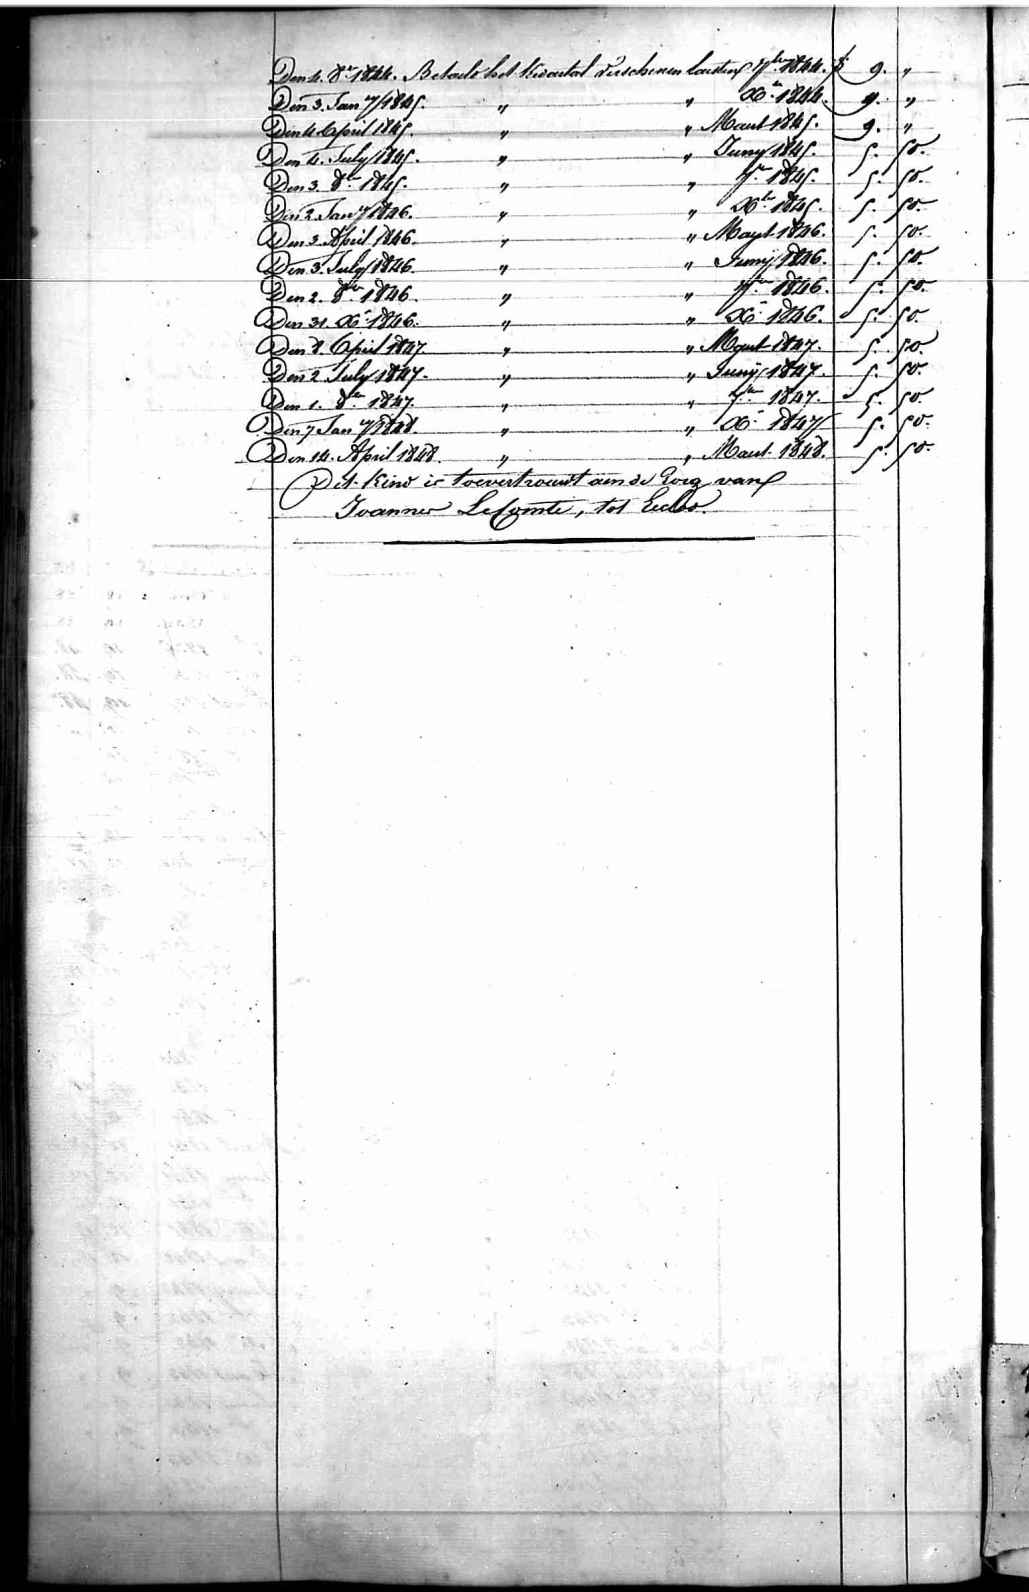 Den 4. 8re 1844. Betaald het Kwartal verschenen laatsten 7ber 1844. f 9. "
Den 3. Jany 1845. " " Xre 1844. 9. "
Den 4 April 1845. " " Maart 1845. 9. "
Den 4. July 1845. " " Juny 1845. 5. 50.
Den 3. 8re 1845. " " 7re 1845. 5. 50.
Den 2 Jany 1846. " " Xbre 1845. 5. 50.
Den 3. April 1846. " " Maart 1846. 5. 50.
Den 3. July 1846. " " Juny 1846. 5. 50.
Den 2. 8bre 1846. " " 7bre 1846. 5. 50.
Den 31. Xre 1846. " " Xre 1846. 5. 50.
Den 8. April 1847. " " Maart 1847. 5. 50.
Den 2 July 1847. " " Juny 1847. 5. 50.
Den 1. 8bre 1847. " " 7bre 1847. 5. 50
Den 7 Jany 1848. " " Xre 1847 5. 50.
Den 14. April 1848. " " Maart 1848. 5. 50.
Det Kind is toevertrouwt aen de Zorg van
Joannes LeComte, tot Eecloo.